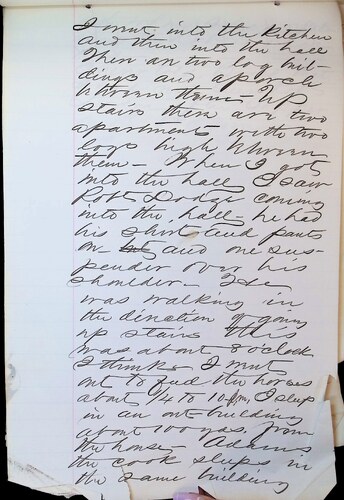 I went into the Kitchen
and then into the hall
There are two log buil-
dings and a porch
between them - Up
stairs there are two
apartments with two
logs high between
them - When I got
into the hall I saw
Robt Dodge coming
into the, hall, he had
his shirt and pants
on - and one sus-
pender over his
shoulder - He
was walking in
the direction of going
up stairs This
was about 8 o'clock
I think - I went
out to feed the horses
about 1/4 to 10 pm, I slep
in an out-building
about 100 yds, from
the house - Adams
the cook sleeps in
the same building